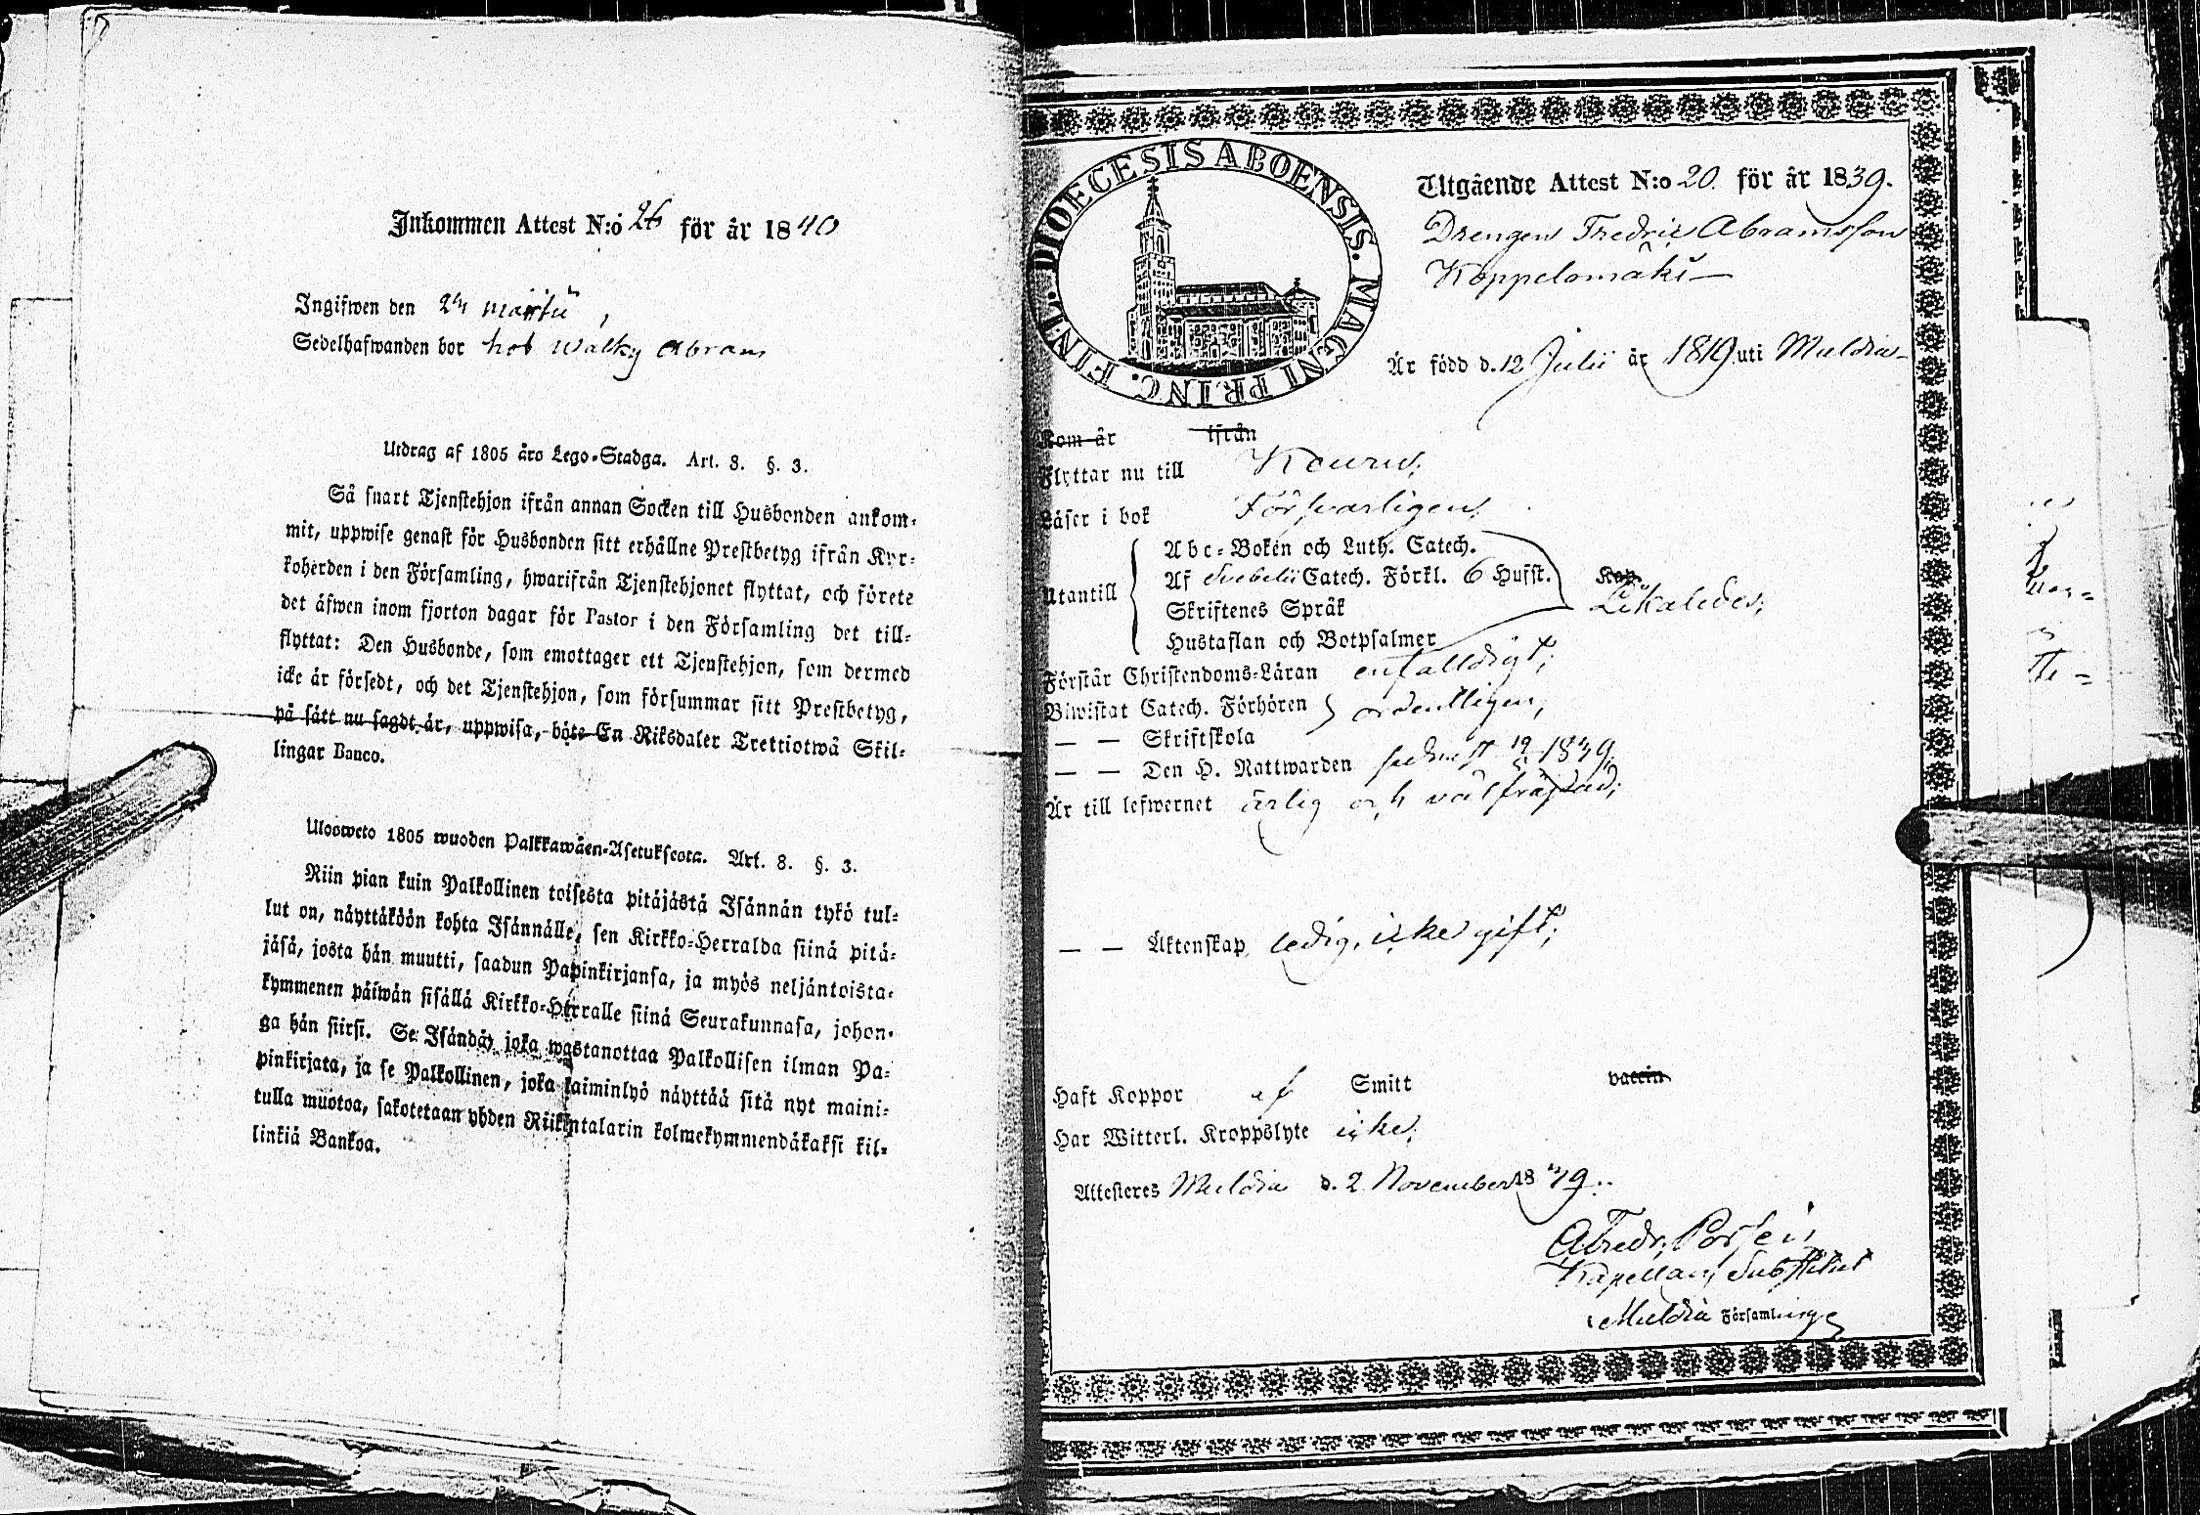 Inkommen Attest N:o 26 för år 1840
Ingifwen den 24 Martii,
Sedelhafwanden bor hos Walky Abram
Utdrag af 1805 åro Lego-Stadga. Art. 8. §. 3.
Så snart Tjenstehjon ifrån annan Socken till Husbonden ankom-
mit, uppwise genast för Husbonden sitt erhållne Prestbetyg ifrån Kyr-
koherden i den Församling, hwarifrån Tjenstehjonet flyttat, och förete
det äfwen inom fjorton dagar för Pastor i den Församling det till-
flyttat: Den Husbonde, som emottager ett Tjenstehjon, som dermed
icke är försedt, och det Tjenstehjon, som försummar sitt Prestbetyg,
på sätt nu sagdt är, uppwisa, böte En Riksdaler Trettiotwå Skil-
lingar Banco.
Ulosweto 1805 wuoden Palkkawäen-Asetuksesta. Art. 8. §. 3.
Niin pian kuin Palkollinen toisesta pitäjästä Isännän tykö tul-
lut on, näyttäköön kohta Isännälle, sen Kirkko-Herralda siinä pitä-
jäsä, josta hän muutti, saadun Papinkirjansa, ja myös neljäntoista-
kymmenen päiwän sisällä Kirkko-Herralle siinä Seurakunnasa, johon-
ga hän siirsi. Se Isändä, joka wastanottaa Palkollisen ilman Pa-
pinkirjata, ja se Palkollinen, joka laiminlyö näyttää sitä nyt maini-
tulla muotoa, sakotetaan yhden Riikintalarin kolmekymmendäkaksi kil-
linkiä Bankoa.
DIOECESIS ABOENSIS. MAGNI PRINC. FINL.
Utgående Attest N:o 20. för år 1839.
Drengen Fredric Abramsson
Koppelomäki
Är född d. 12 Julii år 1819 uti Muldia
Kom år ifrån
Flyttar nu till Keuru,
Läser i bok Försvarligen,
Utantill
Abc-Boken och Luth. Catech.
Af Svebelii Catech. Förkl. 6 Hufst.
Skriftenes Språk
Hustaflan och Botpsalmer
Likaledes,
Förstår Christendoms-Läran enfalldigt,
Biwistat Catech. Förhören ordentligen,
— — Skriftskola
— — Den H. Nattwarden sednast 1839,
Är till lefwernet ärlig och välfräjdad;
— — Äktenskap ledig, icke gift;
Haft Koppor af Smitt vaccin
Har Witterl. Kroppslyte icke,
Attesteres Muldia d. 2 November 1839.
Kapellans Substitut
Muldia Församling